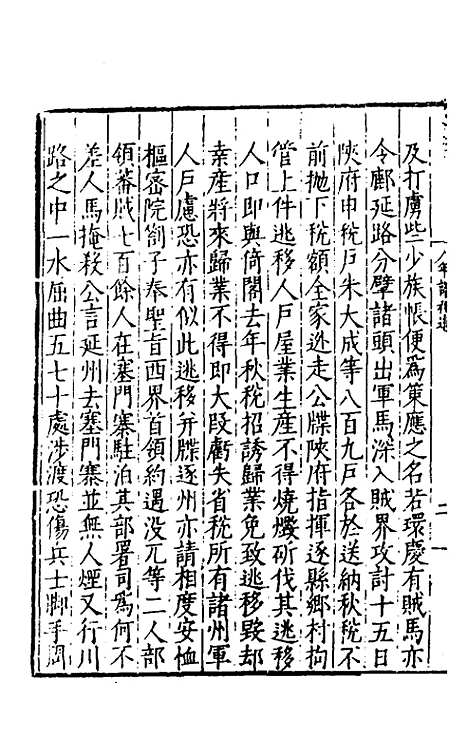 及打虜些少族帳便為策應之名若環慶有賊馬亦
令鄜延路分擘諸頭出軍馬深入賊界攻討十五日
陝府申稅戶朱大成等八百九戶各於送納秋稅不
前拋下稅額全家逃走公牒陝府指揮逐縣鄉村拘
管上件逃移人戶屋業生產不得燒爇斫伐其逃移
人口即與倚閣去年秋稅招誘歸業免致逃移毀却
桒産將來歸業不得即大段虧失省稅所有諸州軍
人戶慮恐亦有似此逃移幷牒逐州亦請相度安恤
樞密院劄子奉聖旨西界首領約遇没兀等二人部
領蕃賊七百餘人在塞門寨駐泊其部署司為何不
差人馬掩殺公言延州去塞門寨並無人煙又行川
路之中一水屈曲五七十處涉渡恐傷兵士脚手間